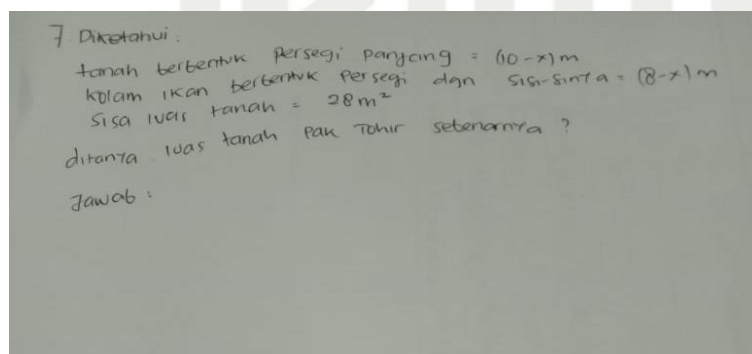 7 Diketahui :
tanah berbentuk Persegi Panjang = (10-x) m
kolam ikan berbentuk persegi dgn sisi-sinya = (8-x) m
Sisa luas tanah = 28 m²
ditanya luas tanah Pak Tohir sebenarnya ?
Jawab :